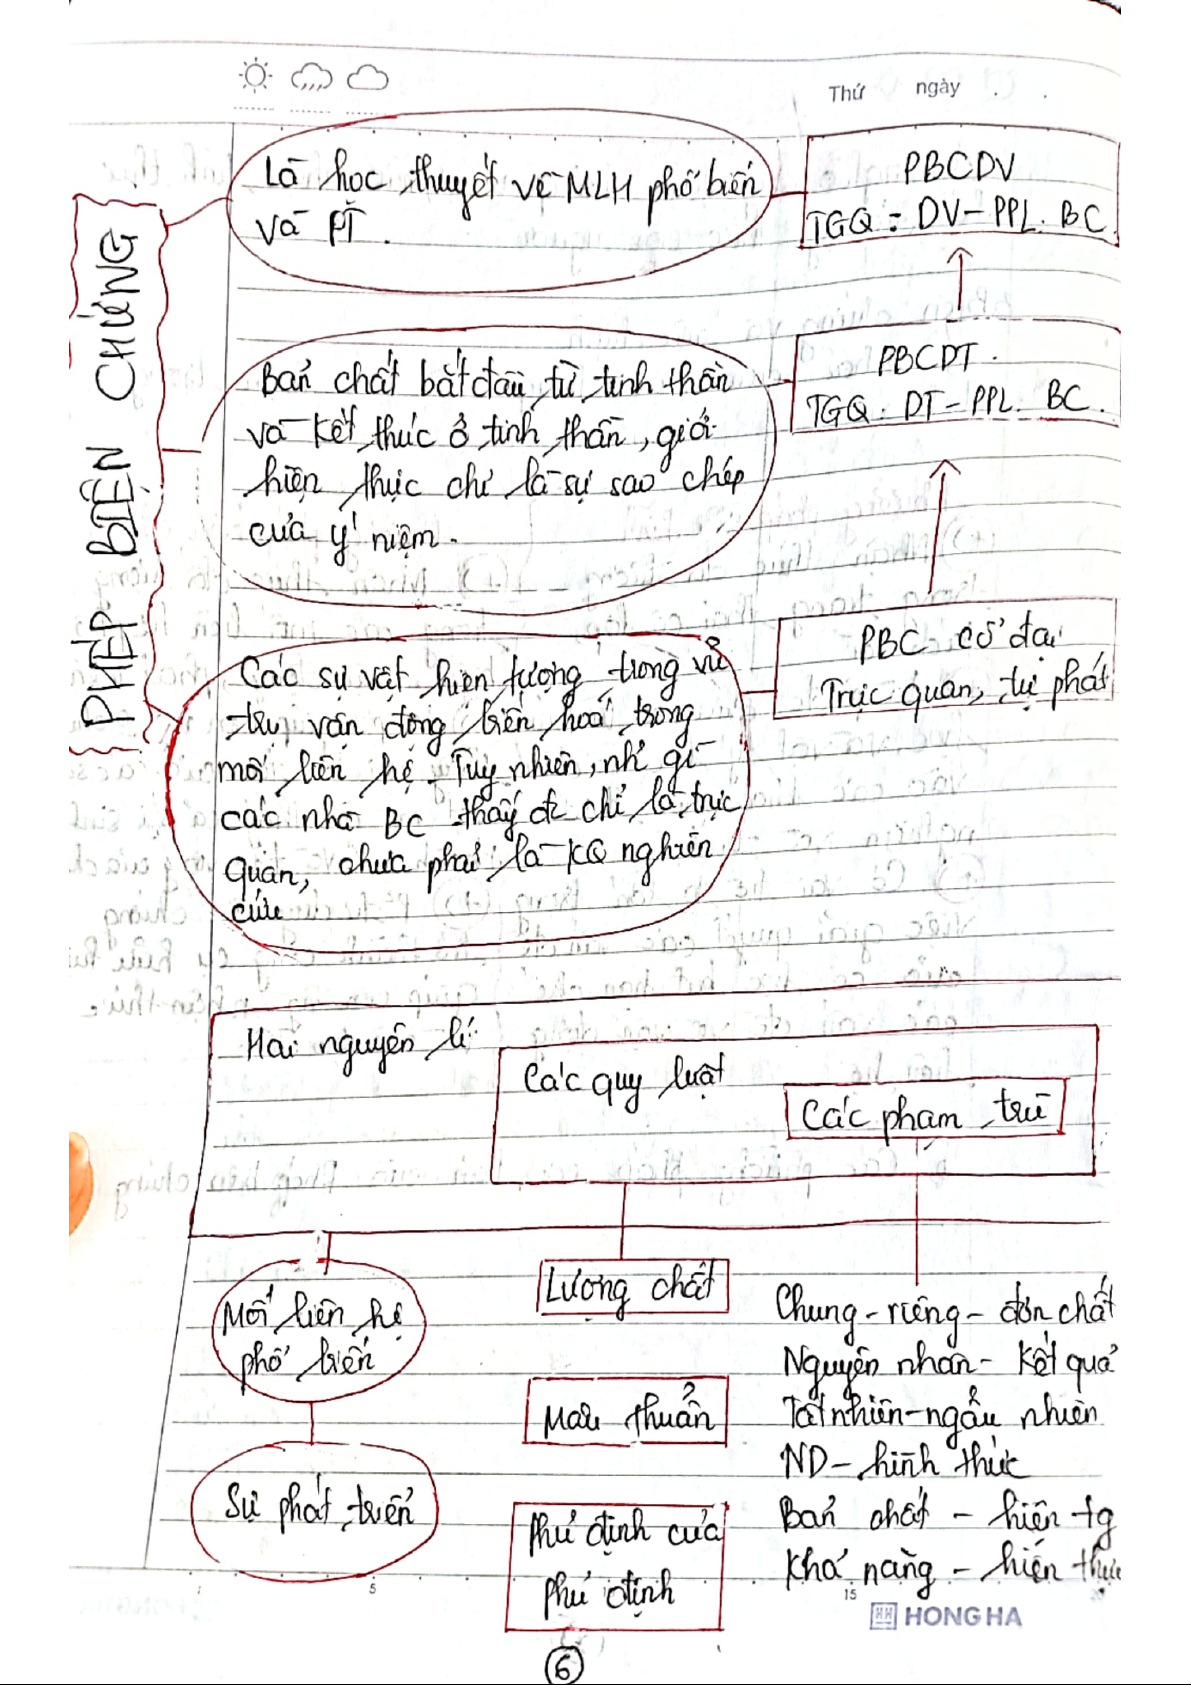 Thứ ngày . .
PHÉP BIỆN CHỨNG
Là học thuyết về MLH phổ biến
và PT.
PBCDV
TGQ: DV-PPL. BC.
Bản chất bắt đầu từ tinh thần
và kết thúc ở tinh thần, giới
hiện thực chỉ là sự sao chép
của ý niệm.
PBCDT.
TGQ: DT-PPL. BC.
Các sự vật hiện tượng trong vũ
trụ vận động biến hoá trong
mối liên hệ. Tuy nhiên, nh~ gì
các nhà BC thấy đc chỉ là trực
quan, chưa phải là KQ nghiên
cứu
PBC cổ đại
Trực quan, tự phát
Hai nguyên lí
Các quy luật
Các phạm trù
Mối liên hệ
phổ biến
Sự phát triển
Lượng chất
Mâu thuẫn
Phủ định của
phủ định
Chung - riêng - đơn chất
Nguyên nhân - kết quả
Tất nhiên - ngẫu nhiên
ND - hình thức
Bản chất - hiện tg
Khả năng - hiện thực
5 15 20
HONG HA
6